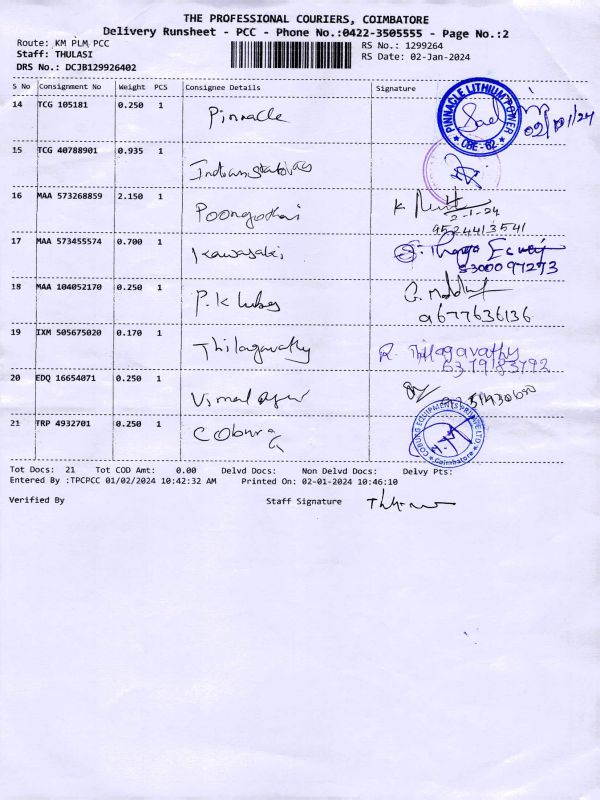 THE PROFESSIONAL COURIERS, COIMBATORE
Delivery Runsheet - PCC - Phone No.:0422-3505555 - Page No.:2
Route: KM PLM PCC
Staff: THULASI
DRS No.: DCJB129926402
RS No.: 1299264
RS Date: 02-Jan-2024
S No Consignment No Weight PCS Consignee Details Signature
14 TCG 105181 0.250 1 Pinnacle
PINNACLE LITHIUM POWER
CBE-62
02/01/24
15 TCG 40788901 0.935 1
16 MAA 573268859 2.150 1 Poongodai
2-1-24
9524413541
17 MAA 573455574 0.700 1 Kawasaki
18 MAA 104052170 0.250 1 P.K
9677636136
19 IXM 505675020 0.170 1 Thilagavathy R. Thilagavathy
6379183792
20 EDQ 16654071 0.250 1
21 TRP 4932701 0.250 1 Coburg
COBURG EQUIPMENTS PRIVATE LTD.
Coimbatore
Tot Docs: 21 Tot COD Amt: 0.00 Delvd Docs: Non Delvd Docs: Delvy Pts:
Entered By :TPCPCC 01/02/2024 10:42:32 AM Printed On: 02-01-2024 10:46:10
Verified By Staff Signature